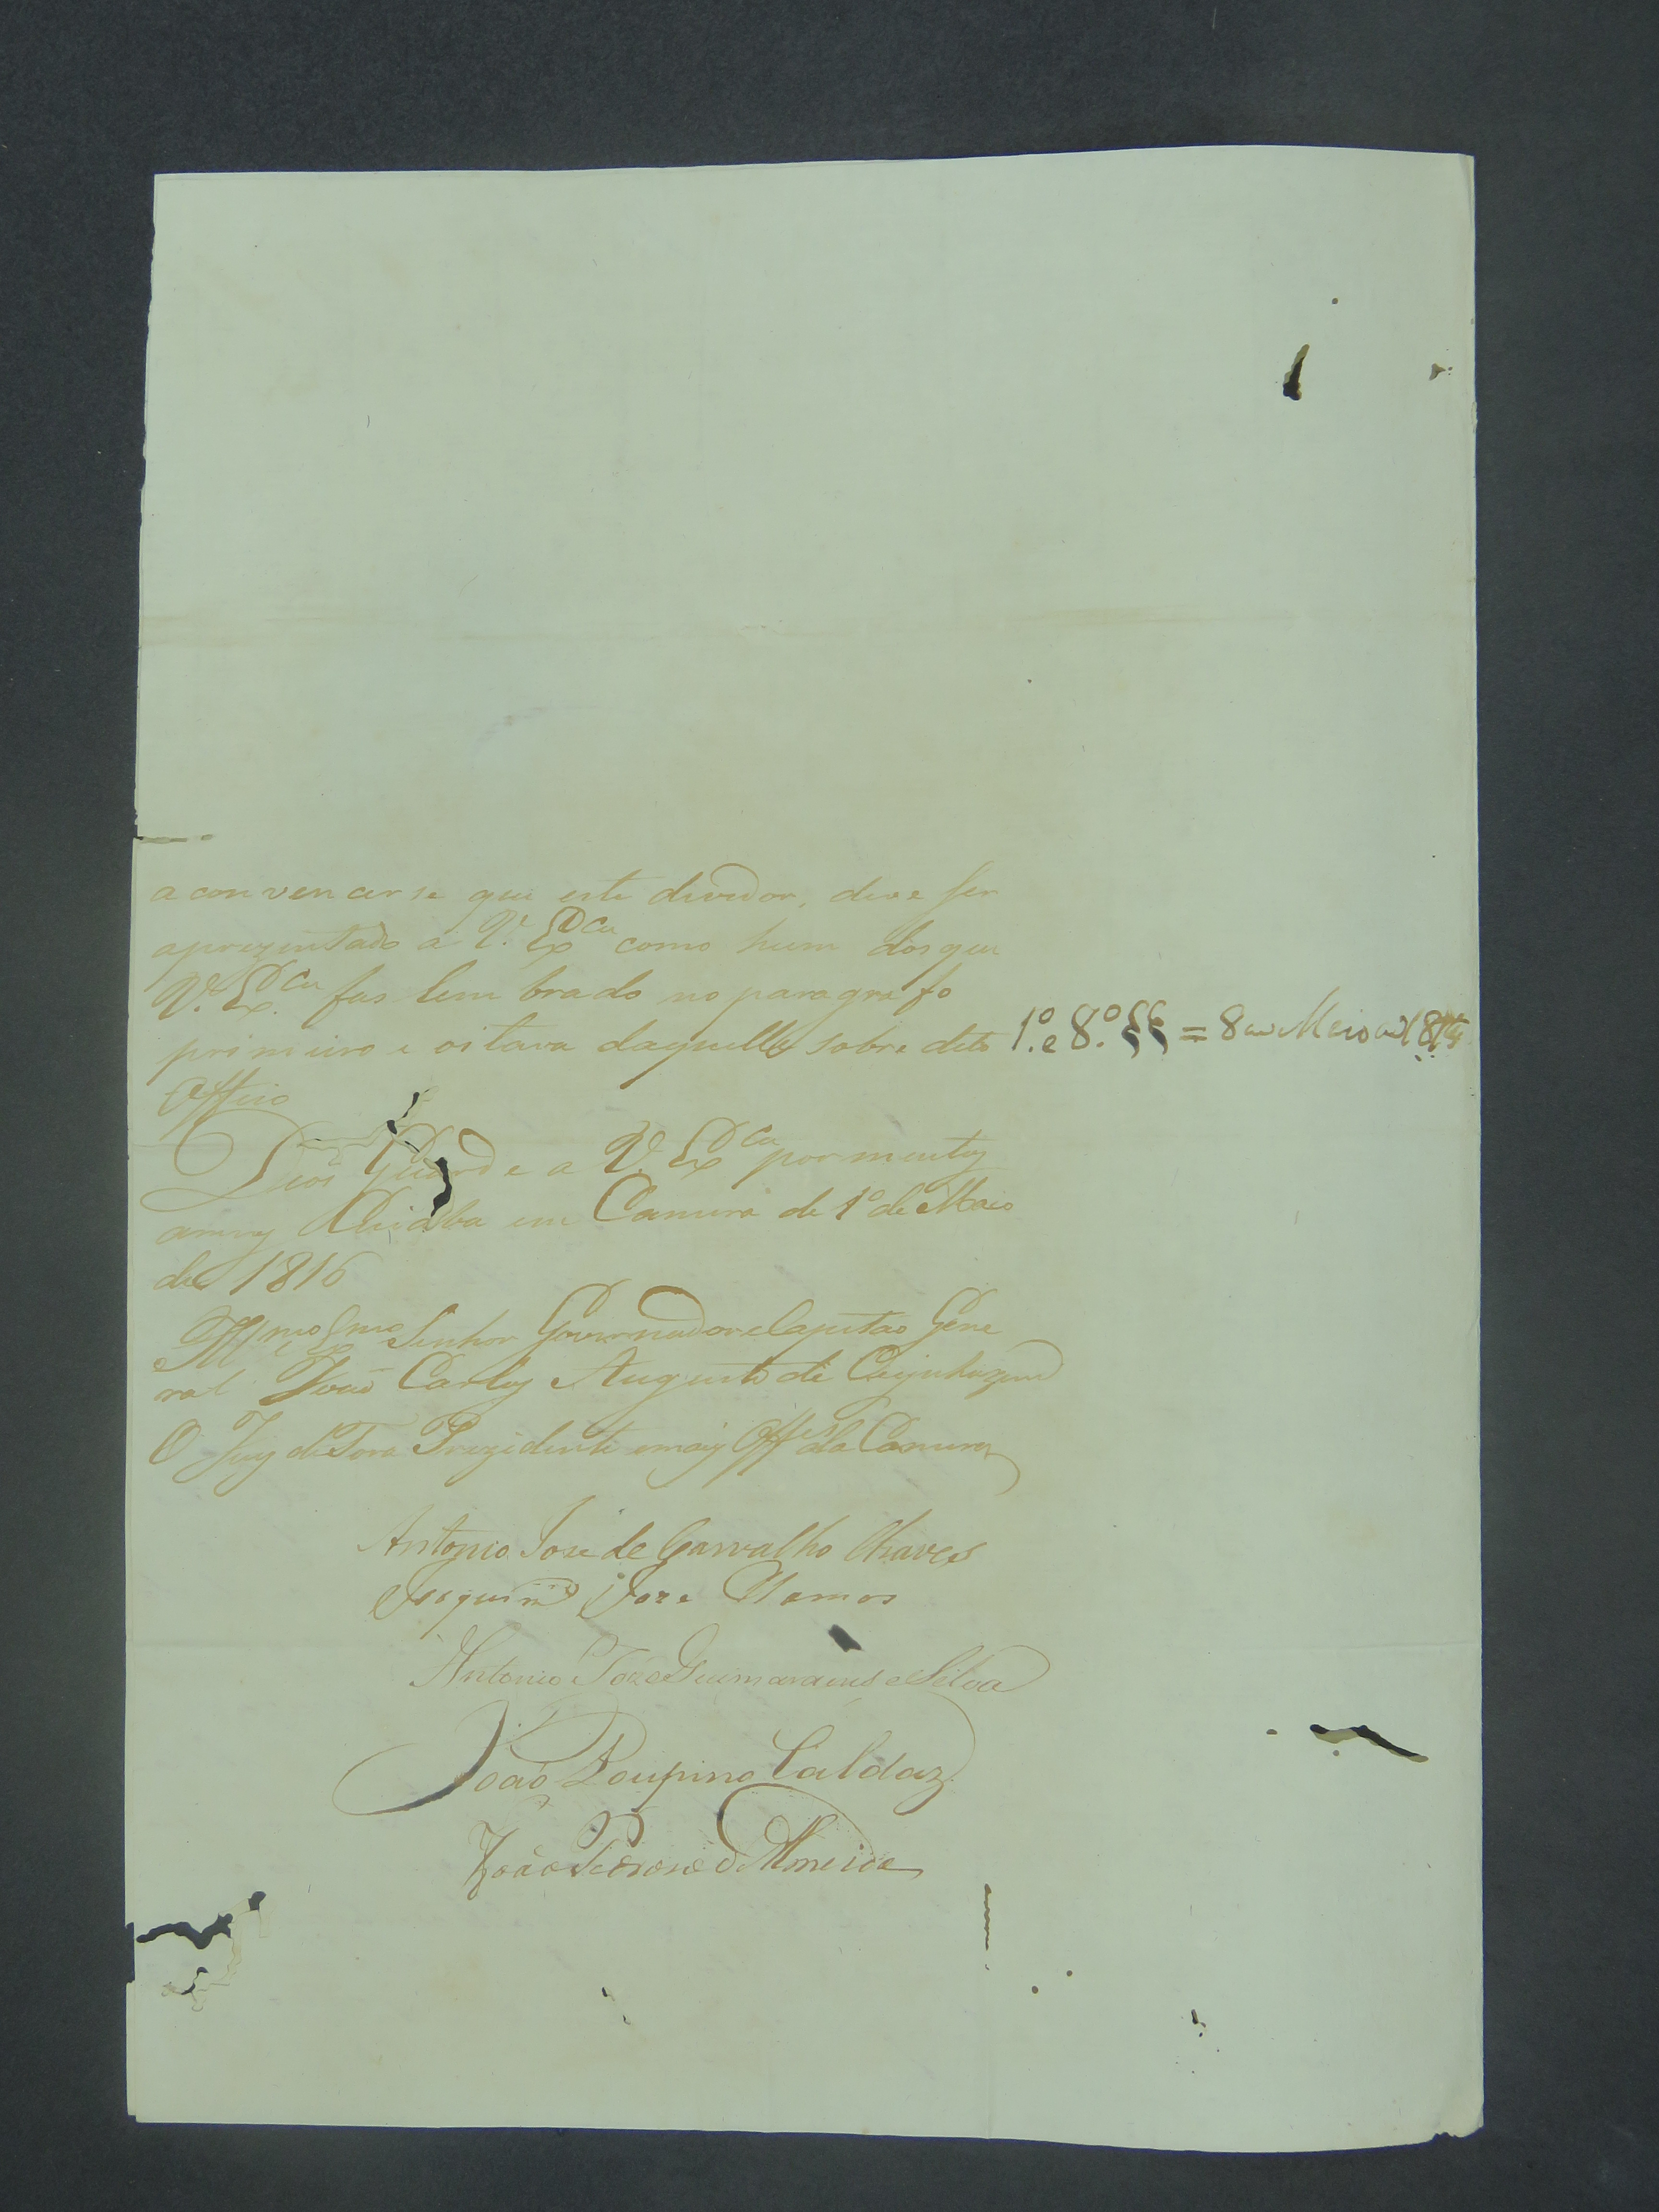 a convencerse que este devedor, deve ser
aprezentado a V. Ex.ca como hum dos que
V. Ex.ca fas lembrado no paragrafo
primeiro e oitavo daquelle sobre dito
Officio
1.º e 8.º §§ = 8 Maio
Deos Guarde a V. Ex.ca por muitos
annos Cuiaba em Camera de 1º de Maio
de 1816
Ill.mo Ex.mo Senhor Governador e Capitao Gene
ral João Carlos Augusto de
O Juiz de Fora Prezidente e mais Off.es da Camera
Antonio Joze de Carvalho Chaves
Joaquim Joze Ramos
Antonio Joze Guimaraens e Silva
João Poupino Caldaz
João Pedroso d Almeida